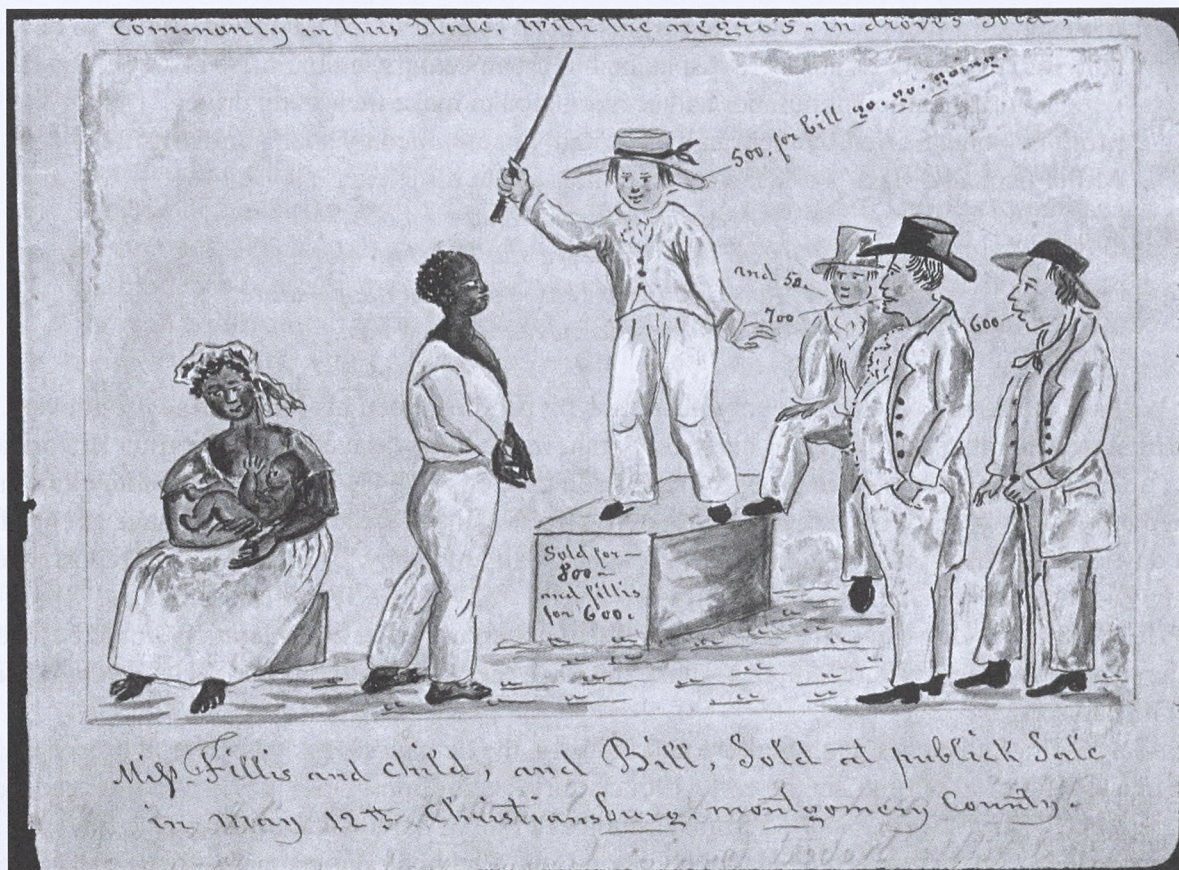 Commonly in this State, with the negro's, in droves Sold,
500. for bill go. go. going.
and 50.
700
600
Sold for —
800 —
and fillis
for 600.
Miss Fillis and child, and Bill, Sold at publick Sale
in May 12th. Christiansburg, montgomery County.